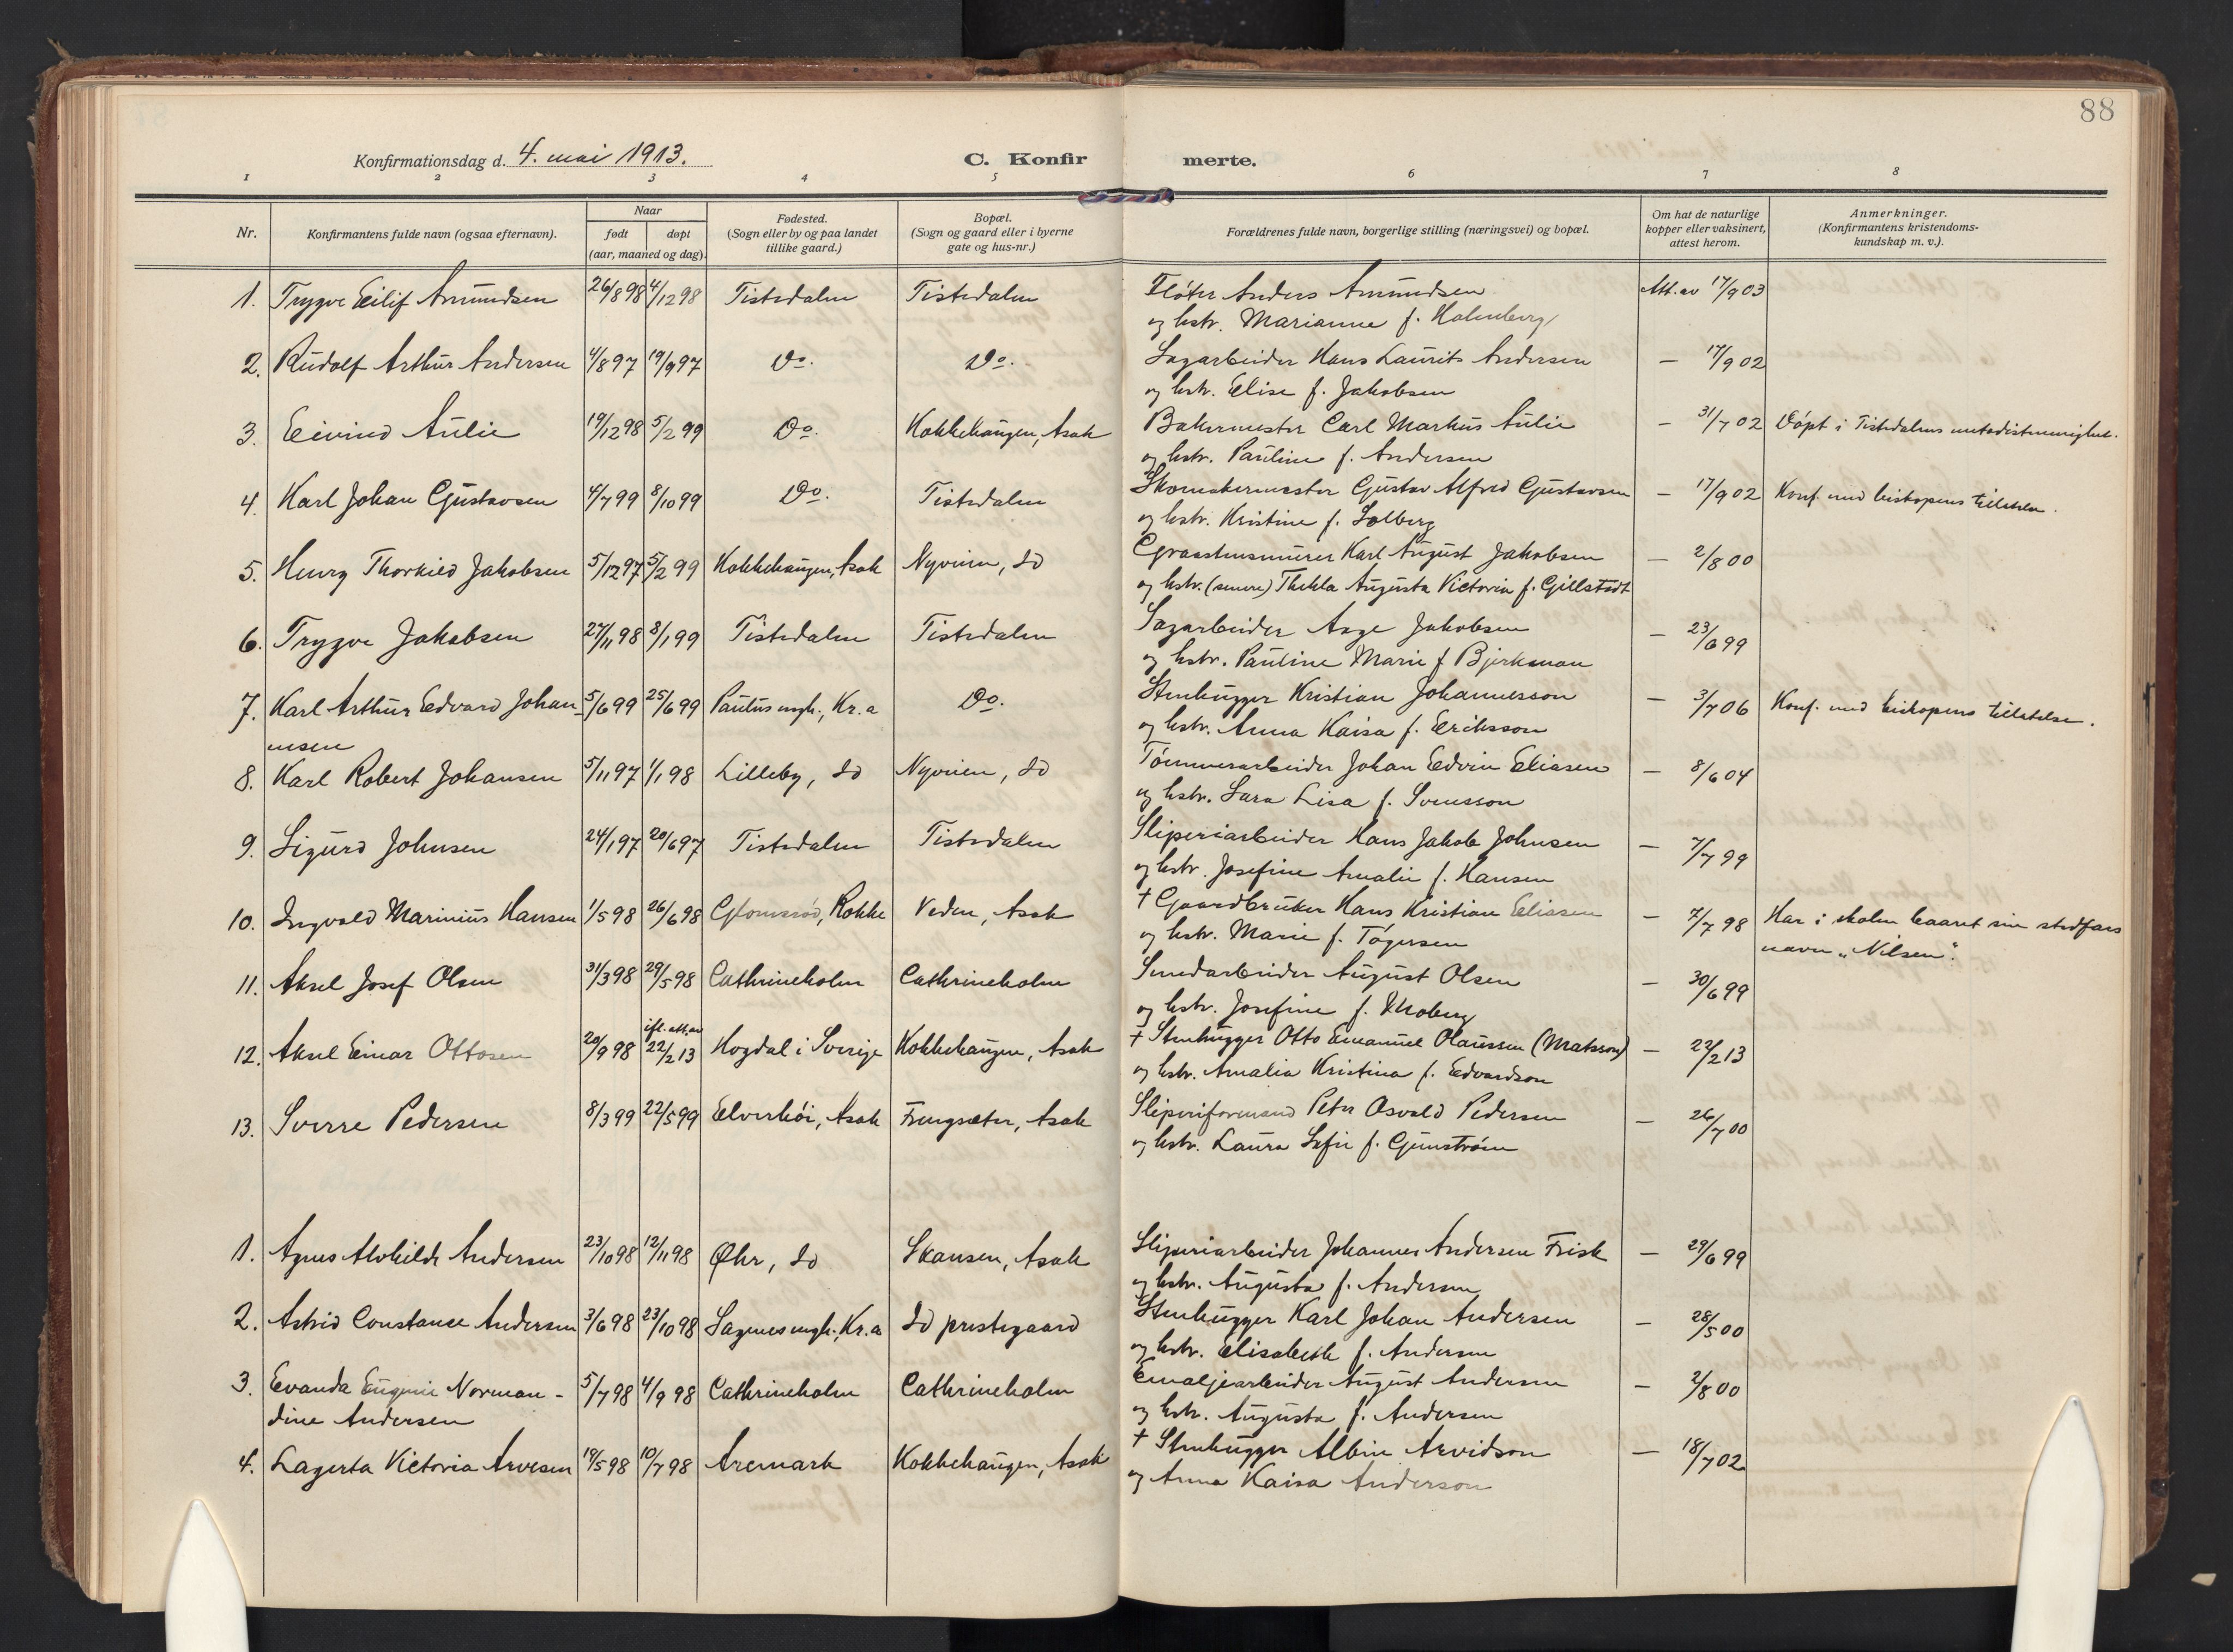 88
Konfirmationsdag d. 4. mai 1913.
C. Konfir merte.
1 2 3 4 5 6 7 8
Nr.
Konfirmantens fulde navn (ogsaa efternavn).
Naar
født døpt
(aar, maaned og dag).
Fødested.
(Sogn eller by og paa landet
tillike gaard.)
Bopæl.
(Sogn og gaard eller i byerne
gate og hus-nr.)
Forældrenes fulde navn, borgerlige stilling (næringsvei) og bopæl.
Om hat de naturlige
kopper eller vaksinert,
attest herom.
Anmerkninger.
(Konfirmantens kristendoms-
kundskap m. v.).
1. Trygve Eilif Amundsen 26/8 98 4/12 98 Tistedalen Tistedalen Fløter Anders Amundsen Att. av 17/9 03
og hstr. Marianne f. Holmberg
2. Rudolf Arthur Andersen 4/8 97 19/9 97 Do. Do. Sagarbeider Hans Laurits Andersen — 17/9 02
og hstr. Elise f. Jakobsen
3. Eivind Aulie 19/12 98 5/2 99 Do. Kokkehaugen, Asak Bakermester Carl Markus Aulie — 31/7 02 Døpt i Tistedalens metodistmenighet.
og hstr. Pauline f. Andersen
4. Karl Johan Gustavsen 4/7 99 8/10 99 Do. Tistedalen Skomakermester Gustav Alfred Gustavsen — 17/9 02 Konf. med biskopens tillatelse.
og hstr. Kristine f. Solberg
5. Henry Thorkild Jakobsen 5/12 97 5/2 99 Kokkehaugen, Asak Nyveien, Id Graastensmurer Karl August Jakobsen — 2/8 00
og hstr. (senere) Thekla Augusta Victoria f. Gillstedt
6. Trygve Jakobsen 27/11 98 8/1 99 Tistedalen Tistedalen Sagarbeider Aage Jakobsen — 23/6 99
og hstr. Pauline Marie f. Bjerkman
7. Karl Arthur Edvard Johan- 5/6 99 25/6 99 Paulus mgh., Kr.a Do. Stenhugger Kristian Johannesson — 3/7 06 Konf. med biskopens tillatelse.
nsen og hstr. Anna Kaisa f. Eriksson
8. Karl Robert Johansen 5/11 97 1/1 98 Lilleby, Id Nyveien, Id Tømmerarbeider Johan Edvin Eliasen — 8/6 04
og hstr. Sara Lisa f. Svensson
9. Sigurd Johnsen 24/1 97 20/6 97 Tistedalen Tistedalen Sliperiarbeider Hans Jakob Johnsen — 7/7 99
og hstr. Josefine Amalie f. Hansen
10. Ingvald Marinius Hansen 1/5 98 26/6 98 Glomsrød, Rokke Veden, Asak † Gaardbruker Hans Kristian Eliassen — 7/7 98 Har i skolen baaret sin stedfars
og hstr. Marie f. Tøgersen navn „Nilsen".
11. Aksel Josef Olsen 31/3 98 29/5 98 Cathrineholm Cathrineholm Smedarbeider August Olsen — 30/6 99
og hstr. Josefine f. Moberg
12. Aksel Einar Ottosen 20/9 98 ifl. att. av 22/2 13 Hogdal i Sverige Kokkehaugen, Asak † Stenhugger Otto Emanuel Olaussen (Matsson) — 22/2 13
og hstr. Amalia Kristina f. Edvardson
13. Sverre Pedersen 8/3 99 22/5 99 Elverhøi, Asak Frengsæter, Asak Sliperiformand Peter Osvald Pedersen — 26/7 00
og hstr. Laura Sofie f. Gunstrøm
1. Agnes Alvhilde Andersen 23/10 98 12/11 98 Øhr, Id Skansen, Asak Sliperiarbeider Johannes Andersen Frisk — 29/6 99
og hstr. Augusta f. Andersen
2. Astrid Constance Andersen 3/6 98 23/10 98 Sagenes mgh., Kr.a Id prestegaard Stenhugger Karl Johan Andersen — 28/5 00
og hstr. Elisabeth f. Andersen
3. Evanda Eugenie Norman- 5/7 98 4/9 98 Cathrineholm Cathrineholm Emaljearbeider August Andersen — 2/8 00
dine Andersen og hstr. Augusta f. Andersen
4. Lagerta Victoria Arvesen 19/5 98 10/7 98 Aremark Kokkehaugen, Asak † Stenhugger Albin Arvidson — 18/7 02
og Anna Kaisa Anderson